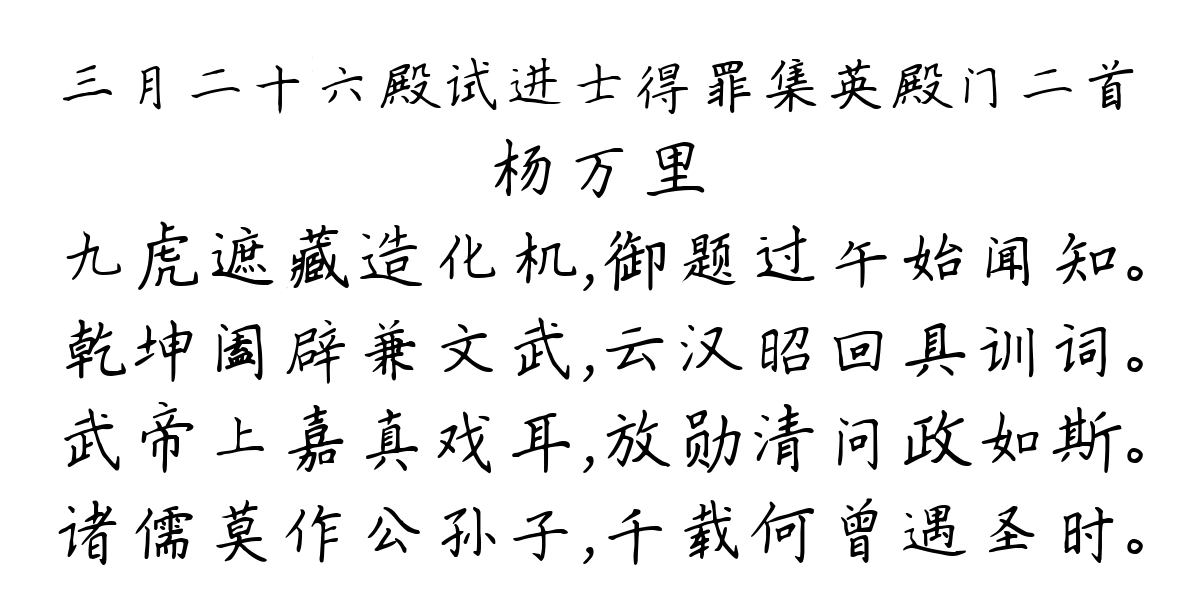 三月二十六殿试进士得罪集英殿门二首
杨万里
九虎遮藏造化机,御题过午始闻知。
乾坤阖辟兼文武,云汉昭回具训词。
武帝上嘉真戏耳,放勋清问政如斯。
诸儒莫作公孙子,千载何曾遇圣时。